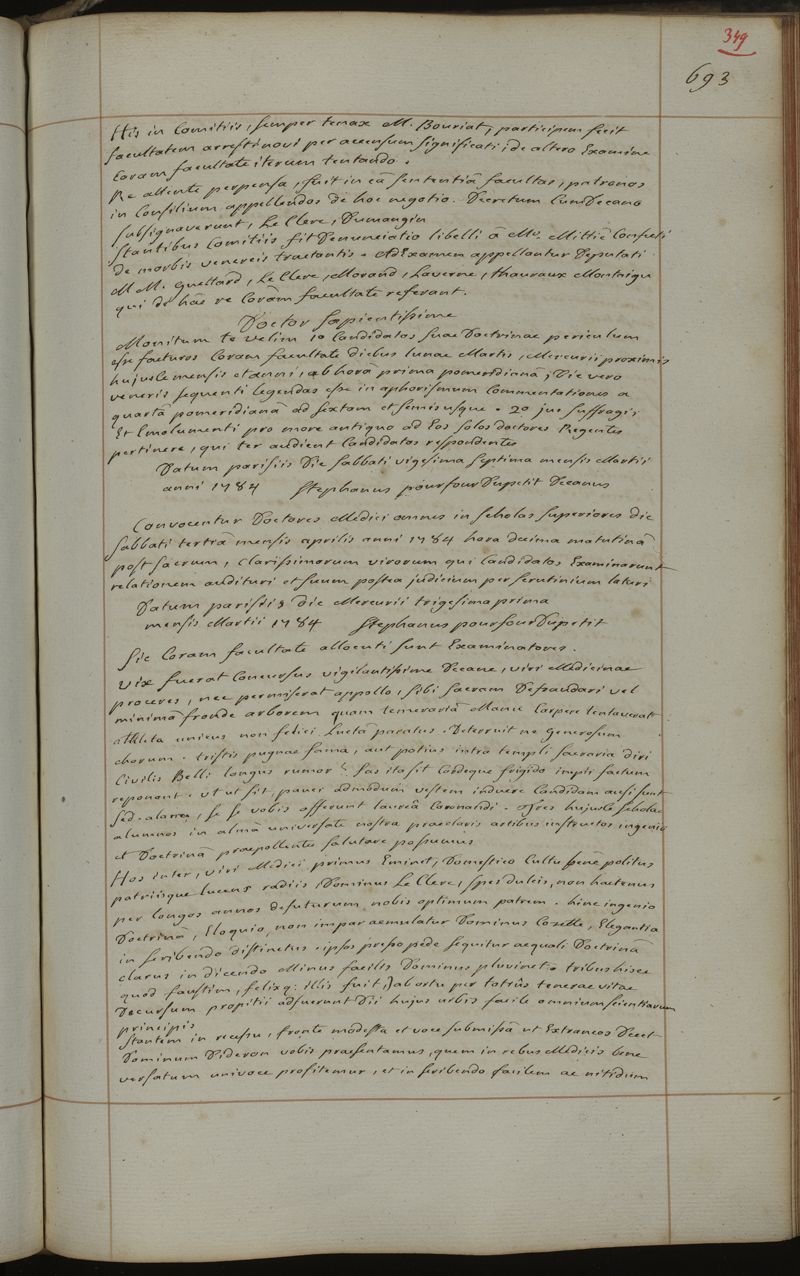 349
693
His in Comitiis, semper tenax M. Bouriat, participem fecit
facultatem arrestinovi per accensum significati, de altero Examine
Coram facultate iterum tentando.
Re attente perpensa, fuit in eâ sententiâ facultas, patronos
in Consilium appellendos de hoc negotio. Decretum Cum Decano
subsignaverunt, Le Clerc, Dumangin
Stantibus Comitiis fit Denunciatio libelli â Mo. Mittiè Conscti
de morbis venereis tractantis. Ad Examen appellantur Deputati
M M. Guettard, Le Clerc, Morand, Laverne, thauraux Montaigu
qui de hâc re Coràm facultate referant.
Doctor Sapientissime
Monitum te velim 1o Candidatos suae Doctrinae periculum
esse facturos Coram facultate diebus lunae Martis, Mercurii proximis
hujusce mensis et anni, ab horâ prima pomeridianâ; Die vero
veneris sequenti legendas esse in aphorismum Commentationes a
quartâ pomeridianâ ad sextam et semis usque. 2o jus suffragii
Et Emolumenti pro more antiquo ad Eos solos doctores Regentes
pertinere, qui ter audient Candidatos respondentes
Datum parisiis Die sabbati vigesima septima mensis Martii
anni 1784 Stephanus pourfour Dupetit Decanus
Convocentur Doctores Medici omnes in scholas superiores die
Sabbati tertiâ mensis aprilis anni 1784 hora decima matutinâ
post sacrum, Clarissimorum virorum qui Candidatos Examinarunt
relationem audituri et suum postea judicium per scrutinium laturi
Datum parisiis die Mercurii trigesima prima
mensis Martii 1784 Stephanus pourfour Dupetit
Sic Coram facultate allocuti sunt Examinatores.
Vix fuerat Concursus vigilantissime Decane, viri Medicinae
proceres, nec permiserat appollo, sibi sacram Defraudari vel
minimâ fronde arborem quam temerariâ Manu Carpere tentaverat
athleta unicus non felici Luctâ paratus. Deterruit ne generosum
chorum. tristis pugnae fama, aut potius intra templi sacraria diri
Civilis Belli longus rumor fas ita sit Cordeque frigido impir factum
reponant. ut ut sit, pauci admodum vestem induere Candidam ausi sunt
sed. alacres, se se vobis offerunt laureâ Coronandi. Tres hujusce scholae
alumnos in almâ universitate nostra praeclaris artibus instructos ingenio
et Doctrinâ praepollentes salutare possumus
Hos inter, viri Medici primus Eminet, Domestico Cultu benè politus
patriisque lucens radiis Dominus Le Clerc, spes dulcis, non hactenus
per longos annos defuturum nobis optimum patrem. hinc ingenio
Doctrinâ, Eloquio non impar aemulatur Dominus Cozette, Elegantia
in scribendo distinctus. ipsos presso pede sequitur aequali Doctrinâ
clarus in dicendo Minus facilis Dominus pluvinet. tribus hisce
quod faustum, felixq: illis fuit, ab ortu per totius tenerae vitae
Decursum propitii adfuerunt Dii hujus urbis facile omnium scientiarum
principis
Stantem in recessu, fronte modesta et voce submissâ ut Extraneos Decet
Dominum Dideron vobis praesentamus, quem in rebus Medicis bene
versatum univoce profitemur, et in scribendo facilem ac nitidum